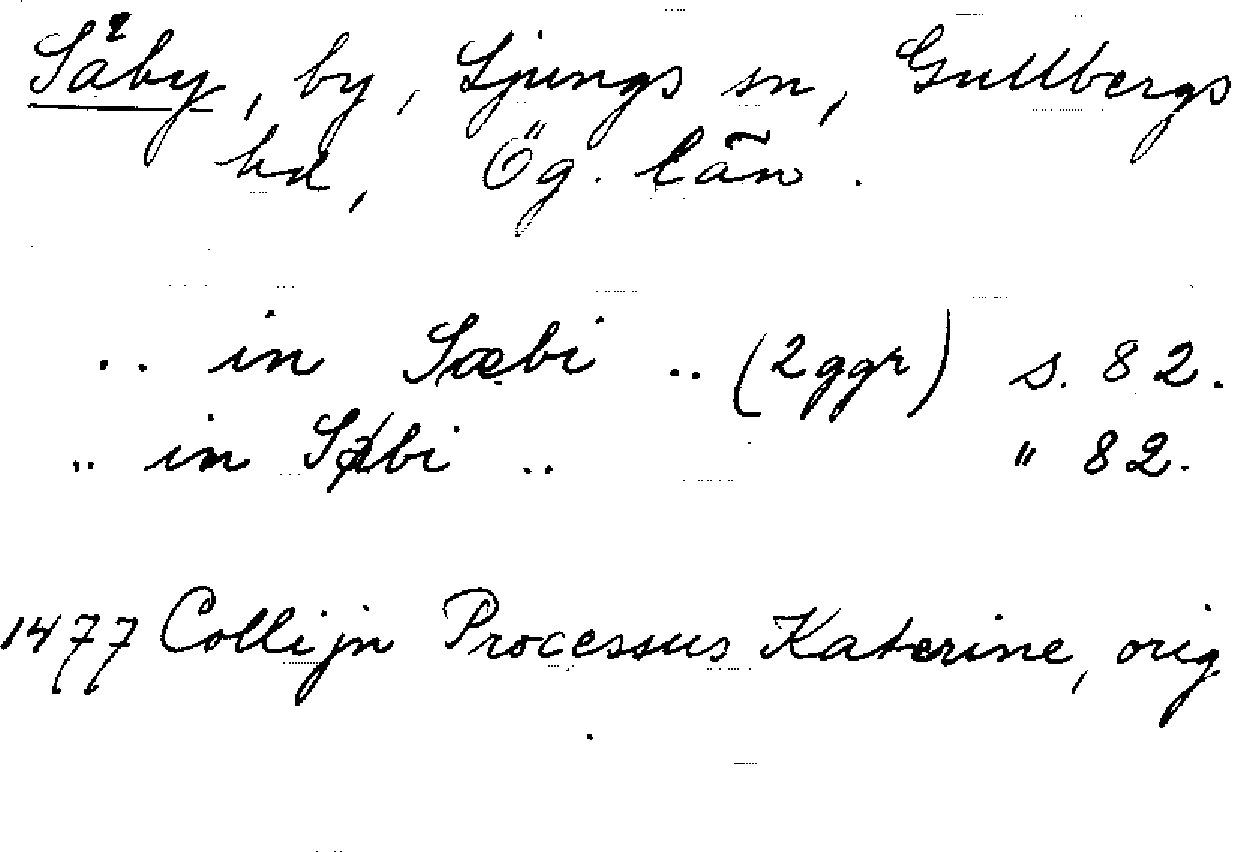 Säby, by, Ljungs sn, Gullbergs
hd, Ög. län.
.. in Sæbi .. (2ggr) s. 82.
.. in Søbi .. " 82.
1477 Collijn Processus Katerine, orig